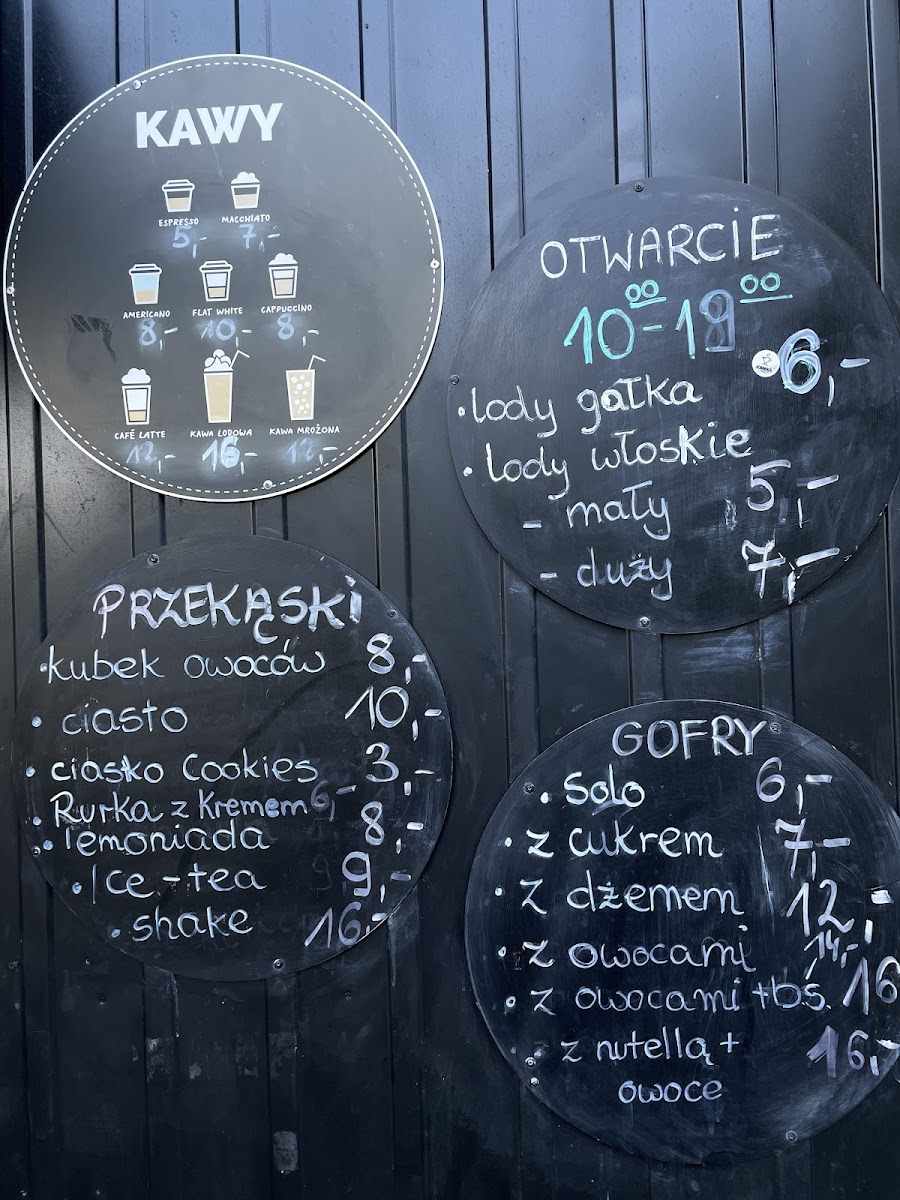 KAWY
ESPRESSO MACCHIATO
5,- 7,-
AMERICANO FLAT WHITE CAPPUCCINO
8,- 10,- 8,-
CAFÉ LATTE KAWA LODOWA KAWA MROŻONA
12,- 16,- 12,-
OTWARCIE
10⁰⁰-18⁰⁰
• lody gałka 6,-
• lody włoskie
- mały 5,-
- duży 7,-
PRZEKĄSKI
• kubek owoców 8,-
• ciasto 10,-
• ciasko Cookies 3,-
• Rurka z kremem 6,-
• lemoniada 8,-
• Ice-tea 9,-
• shake 16,-
GOFRY
• solo 6,-
• z cukrem 7,-
• z dżemem 12,-
• z owocami 14,-
• z owocami + b.ś. 16
• z nutellą + 16,-
owoce